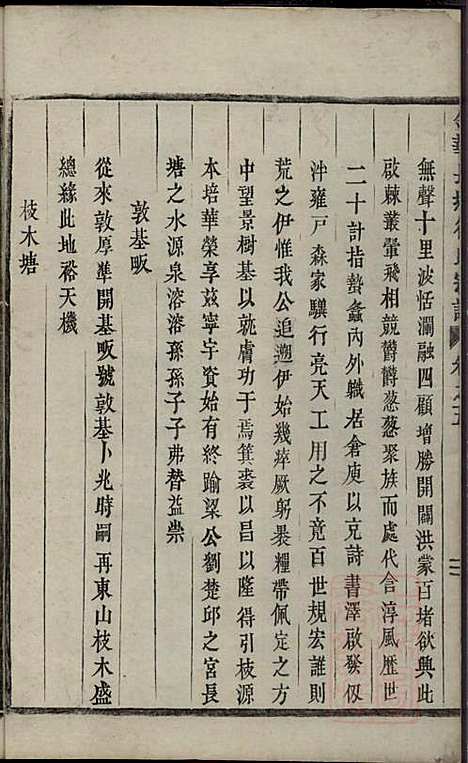 無聲十里波恬瀾融四顧增勝開闢洪蒙百堵欲興此
啟棘叢翬飛相競鬱鬱葱葱聚族而處代含淳風歷世
二十計指蟄螽內外職居倉庾以克詩書澤啟發伋
沖雍戸森家驥行亮天工用之不竟百世規宏誰則
荒之伊惟我公追遡伊始幾瘁厥躬褁糧帶佩定之方
中望景樹基以㪯膚功于焉箕裘以昌以隆得引枝源
本培華榮享兹寧宇資始有終踰梁公劉楚邱之宮長
塘之水源泉溶溶孫孫子子弗替益崇
敦基畈
從來敦厚準開基畈號敦基卜兆時嗣再東山枝木盛
總緣此地裕天機
枝木塘